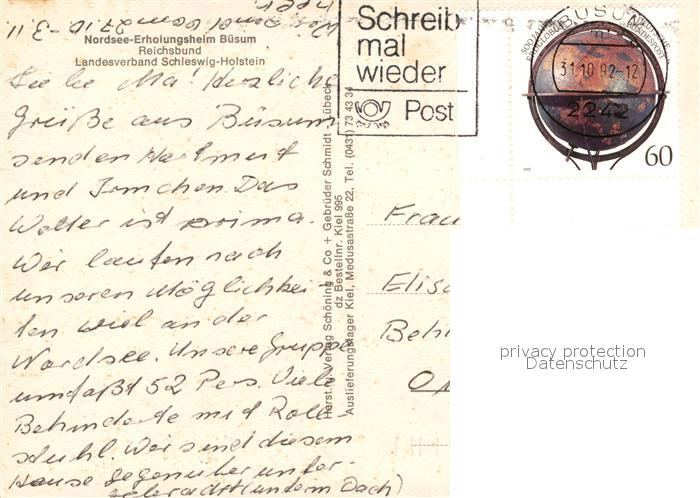 27.10. - 3.11.
Nordsee-Erholungsheim Büsum
Reichsbund
Landesverband Schleswig-Holstein
Liebe Ma! Herzliche
Grüße aus Büsum
senden Hartmut
und Irmchen. Das
Wetter ist prima.
Wir laufen nach
unseren Möglichkei-
ten viel an der
Nordsee. Unsere Gruppe
umfaßt 52 Pers. Viele
Behinderte mit Roll-
stuhl. Wir sind diesem
Hause gegenüber unter-
gebracht (unterm Dach)
Herst. u. Verlag Schöning & Co + Gebrüder Schmidt - Lübeck
dz Bestellnr. Kiel 995
Auslieferungslager Kiel, Medusastraße 22, Tel. (0431) 73 43 34
Schreib
mal
wieder
Post
BÜSUM
31.10.92-12
2242
500 JAHRE
ERDGLOBUS
DEUTSCHE
BUNDESPOST
60
Frau
Elis
Behi
privacy protection
Datenschutz